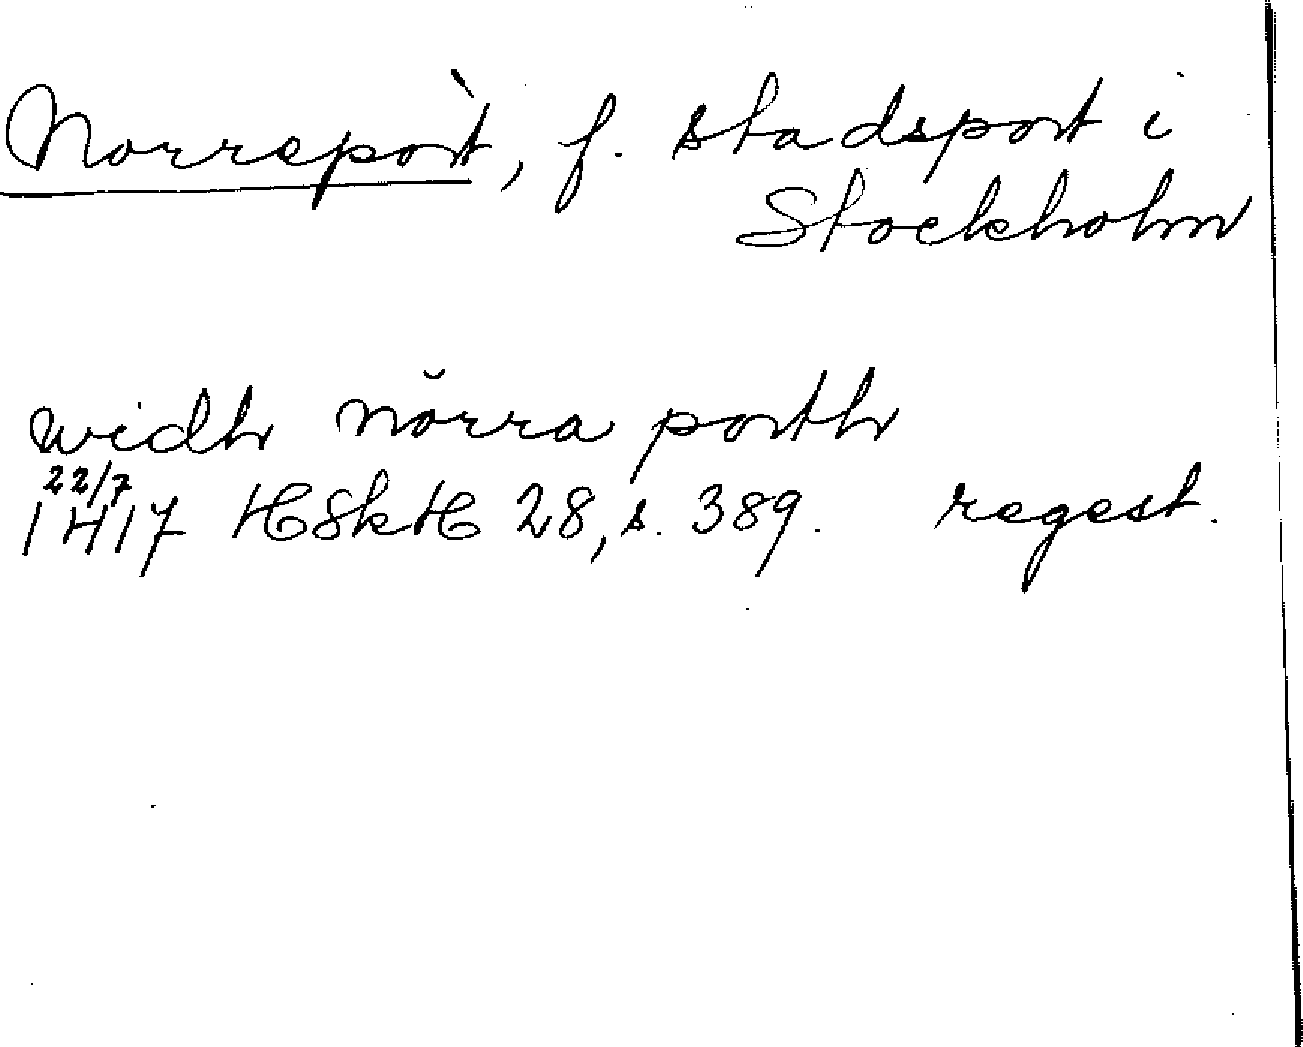 Norreport, f. stadsport i
Stockholm
widh nŏrra porth
22/7
1417 HSkH 28, s. 389. regest.